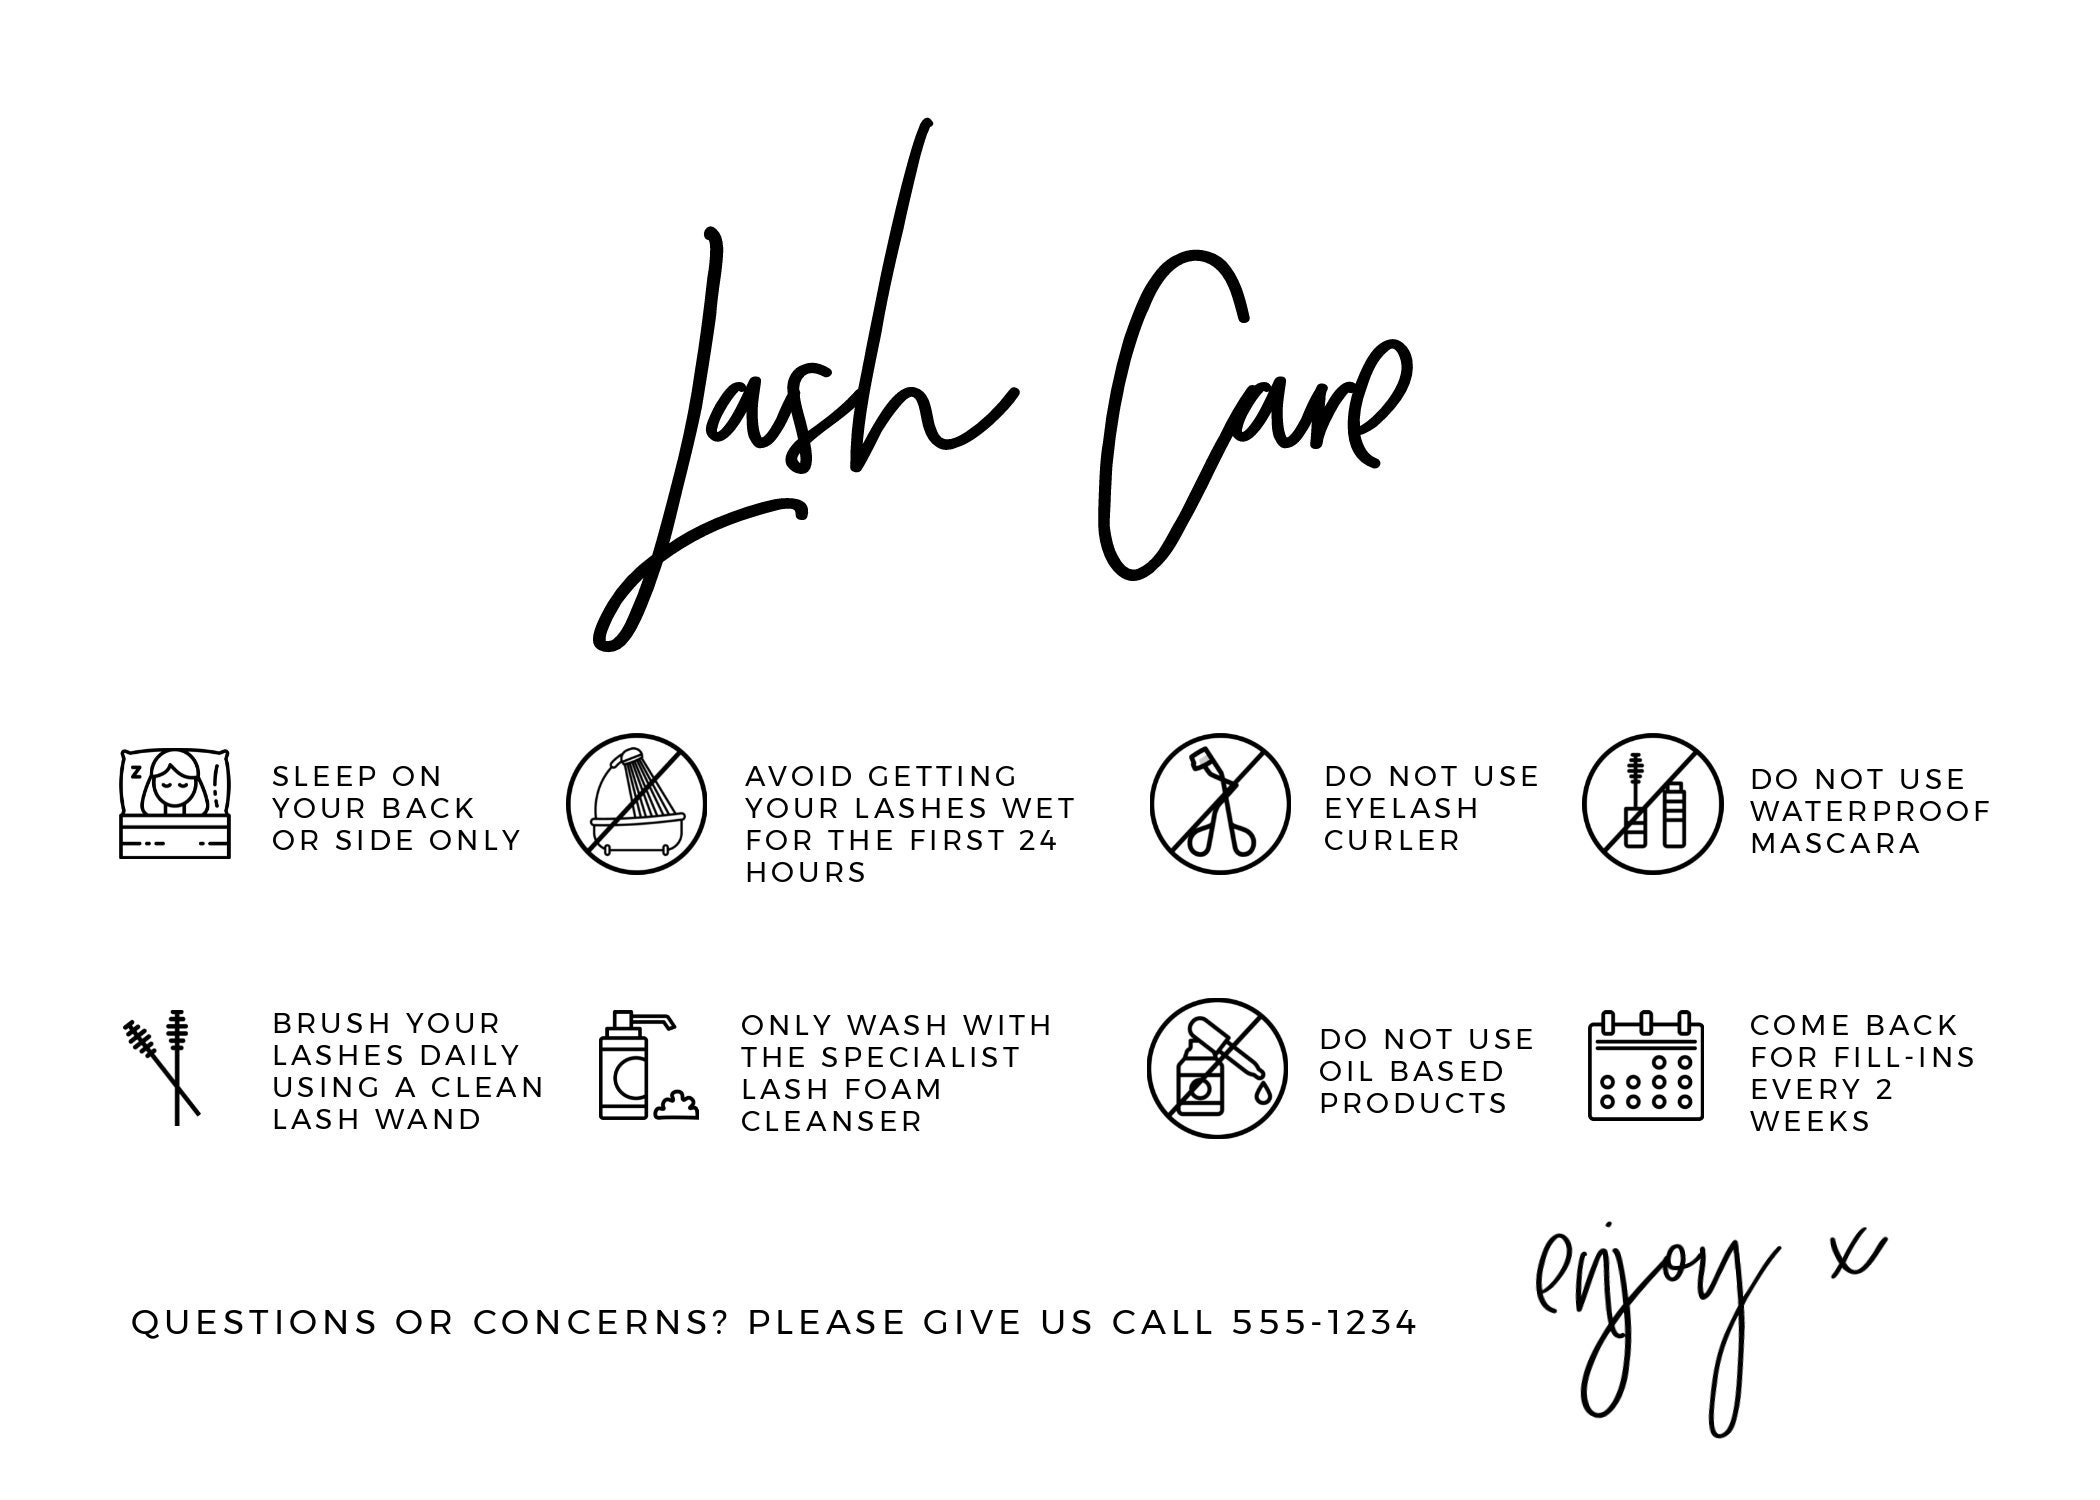 Lash Care
Z
SLEEP ON
YOUR BACK
OR SIDE ONLY
AVOID GETTING
YOUR LASHES WET
FOR THE FIRST 24
HOURS
DO NOT USE
EYELASH
CURLER
DO NOT USE
WATERPROOF
MASCARA
BRUSH YOUR
LASHES DAILY
USING A CLEAN
LASH WAND
ONLY WASH WITH
THE SPECIALIST
LASH FOAM
CLEANSER
DO NOT USE
OIL BASED
PRODUCTS
COME BACK
FOR FILL-INS
EVERY 2
WEEKS
QUESTIONS OR CONCERNS? PLEASE GIVE US CALL 555-1234
enjoy x